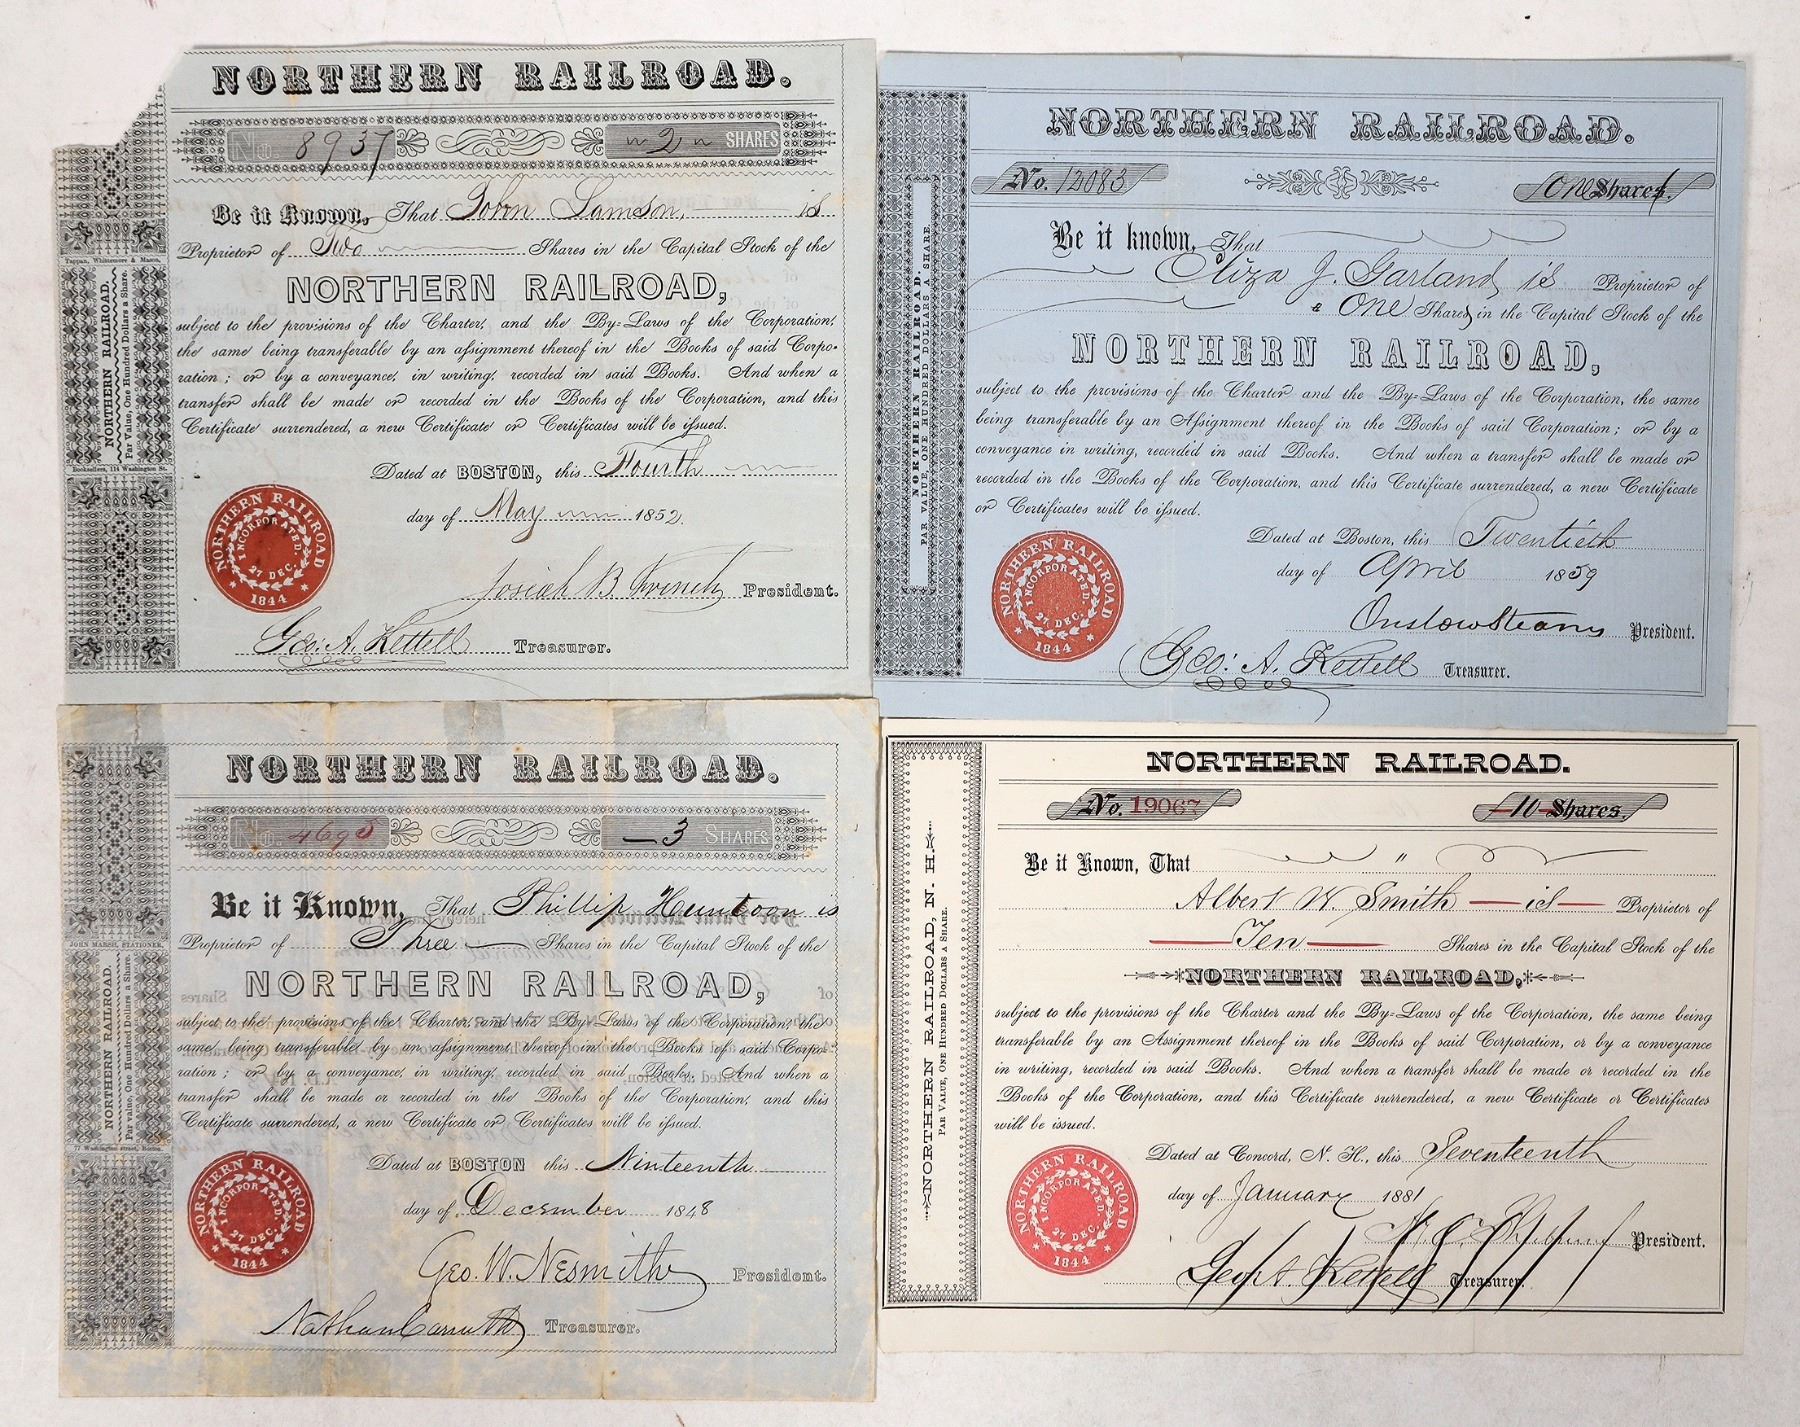 NORTHERN RAILROAD.
No. 8937 2 SHARES
Be it Known, That John Samson, is
Proprietor of Two Shares in the Capital Stock of the
NORTHERN RAILROAD,
subject to the provisions of the Charter, and the By-Laws of the Corporation,
the same being transferable by an assignment thereof in the Books of said Corpo-
ration; or by a conveyance, in writing, recorded in said Books. And when a
transfer shall be made or recorded in the Books of the Corporation, and this
Certificate surrendered, a new Certificate or Certificates will be issued.
Dated at BOSTON, this Fourth
day of May 1852.
Josiah B. French President.
Geo: A. Kettell Treasurer.
NORTHERN RAILROAD
INCORPORATED
27 DEC.
1844
Tappan, Whittemore & Mason,
NORTHERN RAILROAD.
Par Value, One Hundred Dollars a Share.
Booksellers, 114 Washington St.
NORTHERN RAILROAD.
No. 12083 One Shares.
Be it known, That
Eliza J. Garland, is Proprietor of
One Shares in the Capital Stock of the
NORTHERN RAILROAD,
subject to the provisions of the Charter and the By-Laws of the Corporation, the same
being transferable by an Assignment thereof in the Books of said Corporation; or by a
conveyance in writing, recorded in said Books. And when a transfer shall be made or
recorded in the Books of the Corporation, and this Certificate surrendered, a new Certificate
or Certificates will be issued.
Dated at Boston, this Twentieth
day of April 1859
Onslow Stearns President.
Geo: A. Kettell Treasurer.
NORTHERN RAILROAD
INCORPORATED
27 DEC.
1844
NORTHERN RAILROAD.
PAR VALUE, ONE HUNDRED DOLLARS A SHARE.
NORTHERN RAILROAD.
No. 4698 3 SHARES
Be it Known, That Phillip Huntoon is
Proprietor of Three Shares in the Capital Stock of the
NORTHERN RAILROAD,
subject to the provisions of the Charter, and the By-Laws of the Corporation, the
same being transferable by an assignment thereof in the Books of said Corpo-
ration; or by a conveyance, in writing, recorded in said Books. And when a
transfer shall be made or recorded in the Books of the Corporation, and this
Certificate surrendered, a new Certificate or Certificates will be issued.
Dated at BOSTON this Ninteenth
day of December 1848
Geo. W. Nesmith President.
Nathan Carruth Treasurer.
NORTHERN RAILROAD
INCORPORATED
27 DEC.
1844
JOHN MARSH, STATIONER,
NORTHERN RAILROAD.
Par value, One Hundred Dollars a Share.
77 Washington street, Boston.
NORTHERN RAILROAD.
No. 19067 10 Shares.
Be it Known, That "
Albert W. Smith is Proprietor of
Ten Shares in the Capital Stock of the
NORTHERN RAILROAD,
subject to the provisions of the Charter and the By-Laws of the Corporation, the same being
transferable by an Assignment thereof in the Books of said Corporation, or by a conveyance
in writing, recorded in said Books. And when a transfer shall be made or recorded in the
Books of the Corporation, and this Certificate surrendered, a new Certificate or Certificates
will be issued.
Dated at Concord, N. H., this Seventeenth
day of January 1881
President.
Geo. A. Kettell Treasurer.
NORTHERN RAILROAD
INCORPORATED
27 DEC.
1844
NORTHERN RAILROAD, N. H.
PAR VALUE, ONE HUNDRED DOLLARS A SHARE.